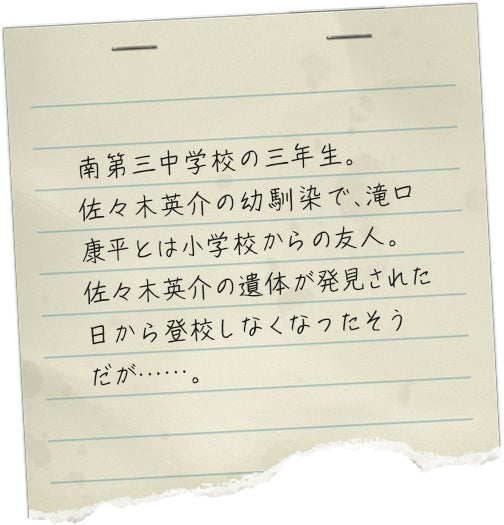 南第三中学校の三年生。
佐々木英介の幼馴染で、滝口
康平とは小学校からの友人。
佐々木英介の遺体が発見された
日から登校しなくなったそう
だが……。